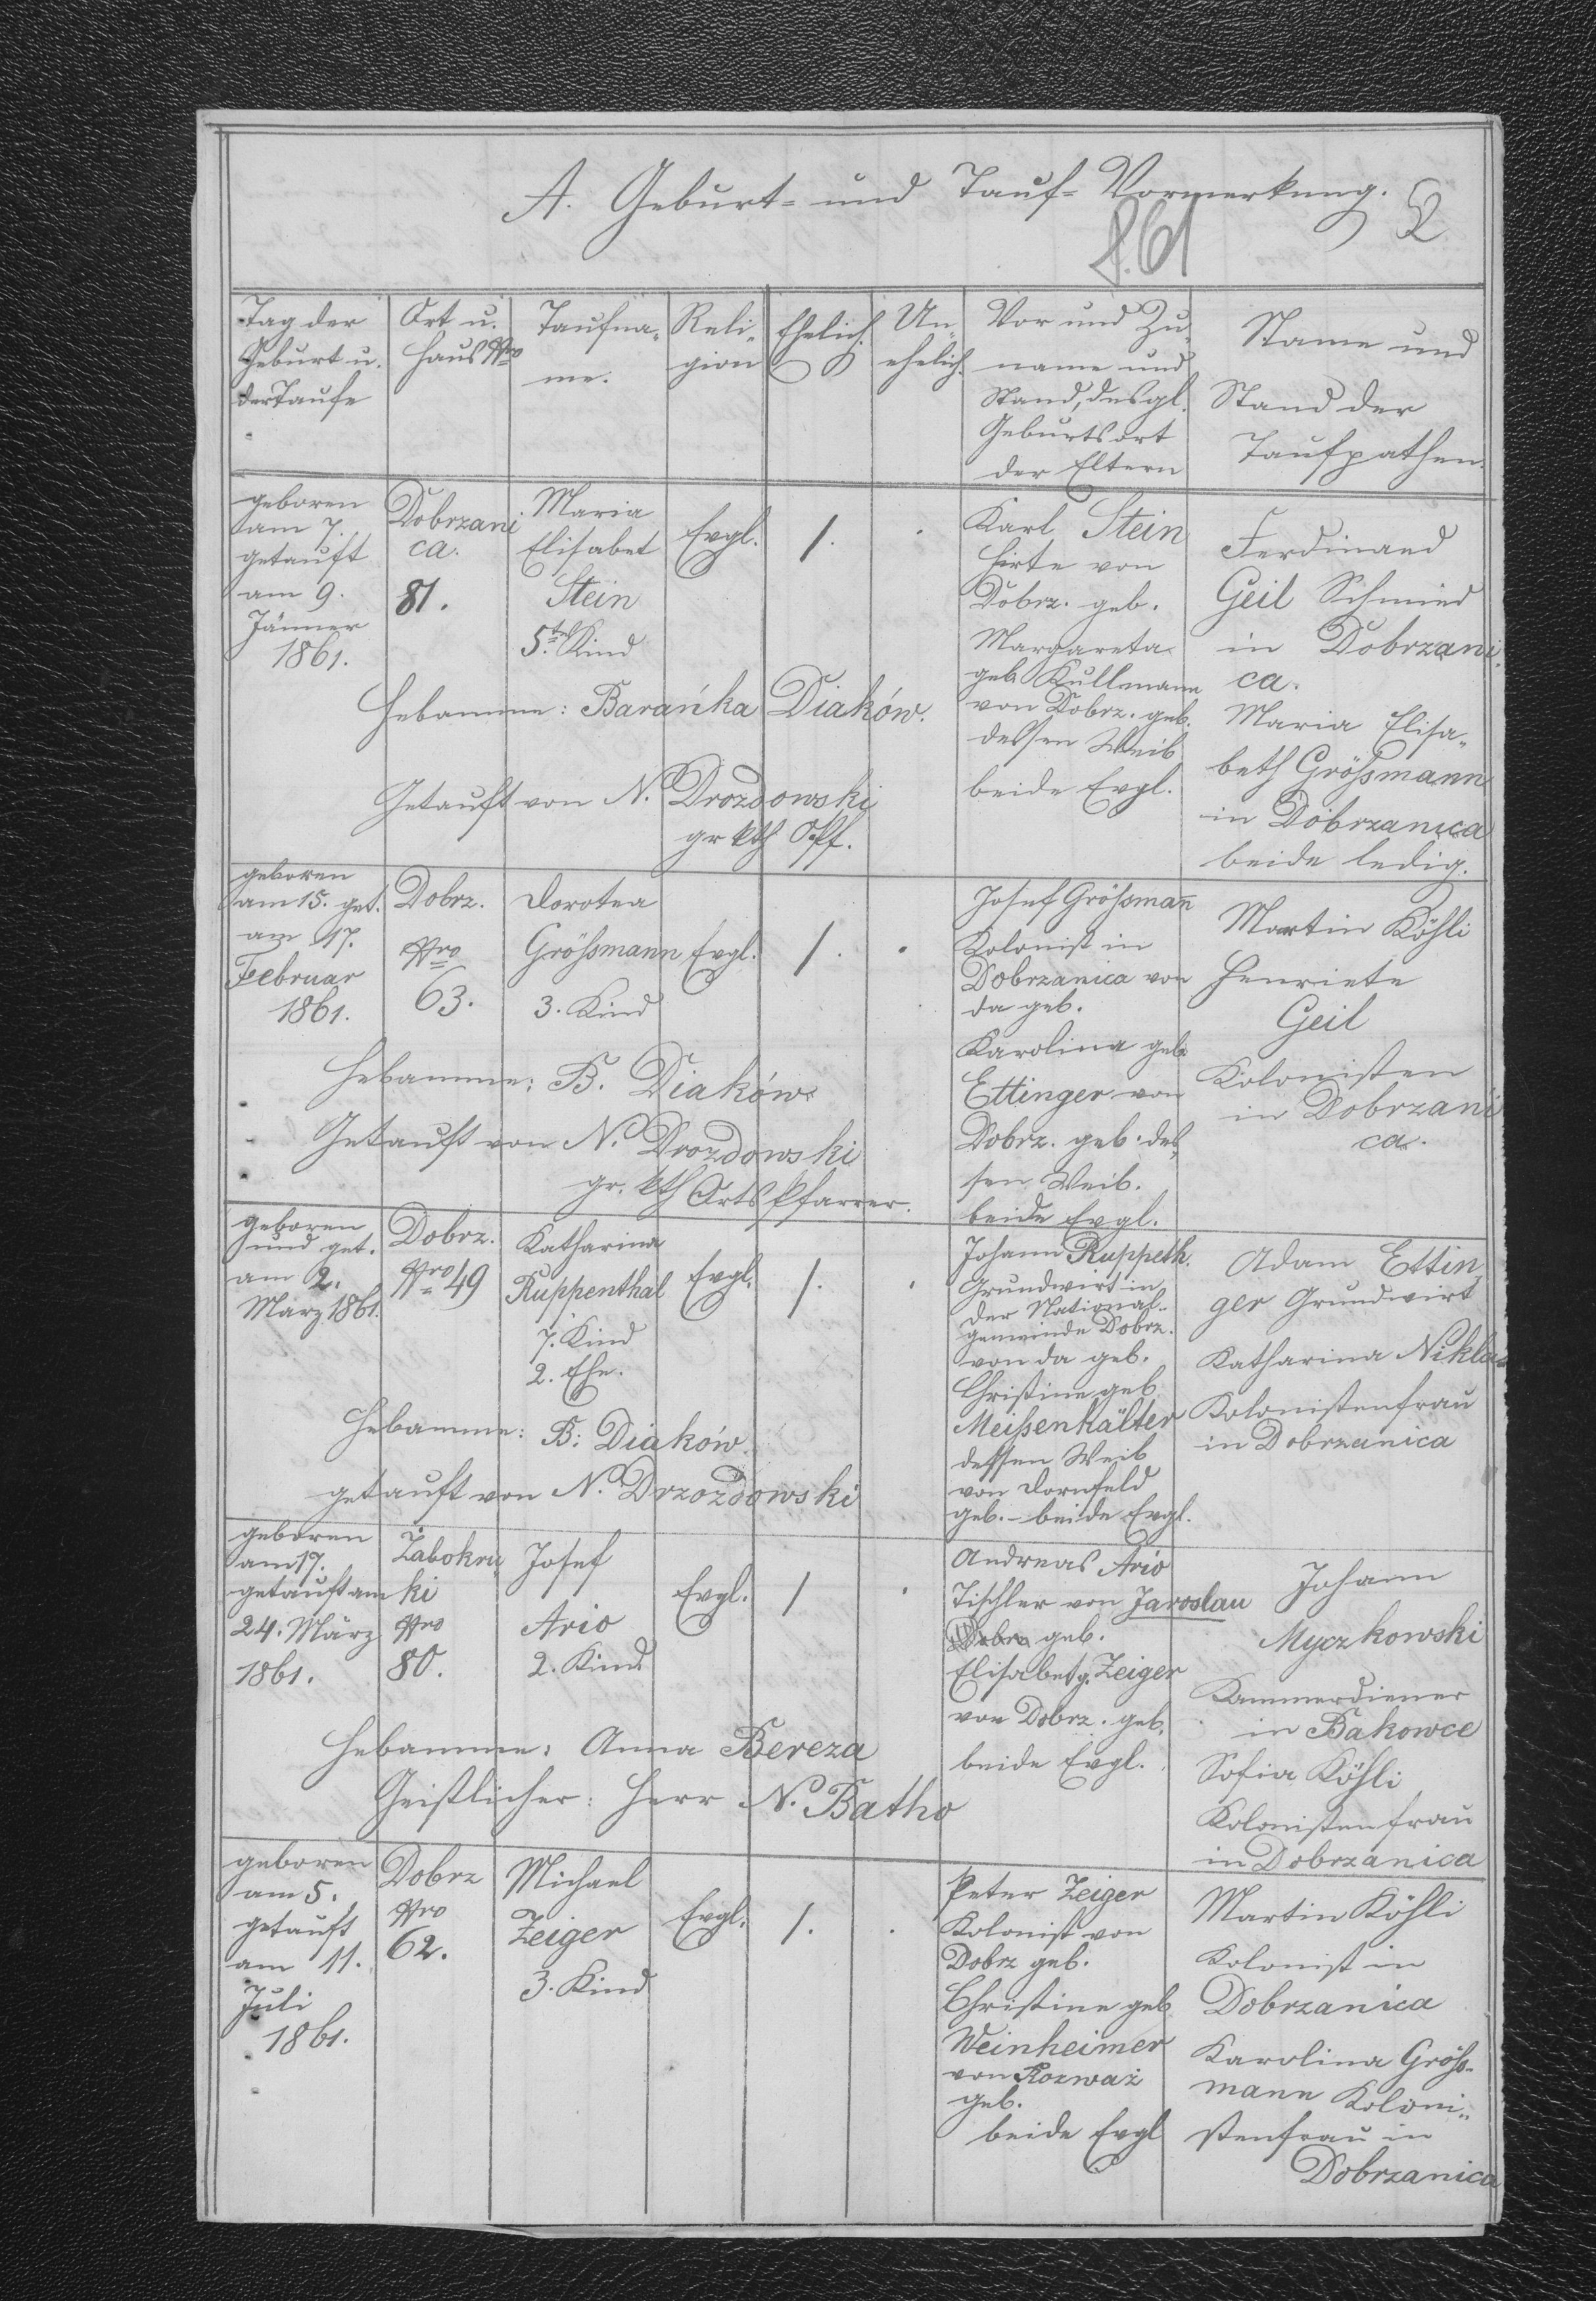 A. Geburt- und Tauf-Vormerkung.
2
861
Tag der
Geburt u.
der Taufe
Ort u.
Haus Nro
Taufna-
me.
Reli-
gion
Ehelich.
Un-
ehelich.
Vor und Zu-
name und
Stand, desgl.
Geburtsort
der Eltern
Name und
Stand der
Taufpathen.
geboren
am 7.
getauft
am 9.
Jänner
1861.
Dobrzani
ca.
81.
Maria
Elisabet
Stein
5tes Kind
Evgl.
1.
Karl Stein
Hirte von
Dobrz. geb.
Margareta
geb. Kullmann
von Dobrz. geb.
dessen Weib
beide Evgl.
Ferdinand
Geil Schmied
in Dobrzani
ca.
Maria Elisa-
beth Größmann
in Dobrzanica
beide ledig.
Hebamme: Barańka Diaków.
Getauft von N. Drozdowski
gr kth OPf.
geboren
am 15. get.
am 17.
Februar
1861.
Dobrz.
Nro
63.
Dorotea
Größmann
3. Kind
Evgl.
1.
Josef Größmañ
Kolonist in
Dobrzanica von
da geb.
Karolina geb
Ettinger von
Dobrz. geb. des-
sen Weib.
beide Evgl.
Martin Köhli
Henriete
Geil
Kolonisten
in Dobrzani
ca.
Hebamme: B. Diaków
Getauft von N. Drozdowski
gr. kth Ortspfarrer.
geboren
und get.
am 2.
März 1861.
Dobrz.
Nro 49
Katharina
Ruppenthal
7. Kind
2. Ehe.
Evgl.
1.
Johann Ruppeth.
Grundwirt in
der National-
gemeinde Dobrz.
von da geb.
Christine geb
Meißenhälter
dessen Weib
von Dornfeld
geb. – beide Evgl.
Adam Ettin-
ger Grundwirt
Katharina Niklas
Kolonistenfrau
in Dobrzanica
Hebamme: B: Diaków
getauft von N. Drzozdowski
geboren
am 17.
getauft am
24. März
1861.
Żabokru-
ki
Nro
80.
Josef
Ario
2. Kind
Evgl.
1
Andreas Ario
Tischler von Jaroslau
geb.
Elisabet g. Zeiger
von Dobrz. geb.
beide Evgl.
Johann
Myczkowski
Kammerdiener
in Bakowce
Sofia Köhli
Kolonistenfrau
in Dobrzanica
Hebamme: Anna Bereza
Geistlicher: Herr N. Batho
geboren
am 5.
getauft
am 11.
Juli
1861.
Dobrz
Nro
62.
Michael
Zeiger
3. Kind
Evgl.
1.
Peter Zeiger
Kolonist von
Dobrz geb.
Christine geb
Weinheimer
von Rozważ
geb.
beide Evgl
Martin Köhli
Kolonist in
Dobrzanica
Karolina Größ-
mann Koloni-
stenfrau in
Dobrzanica